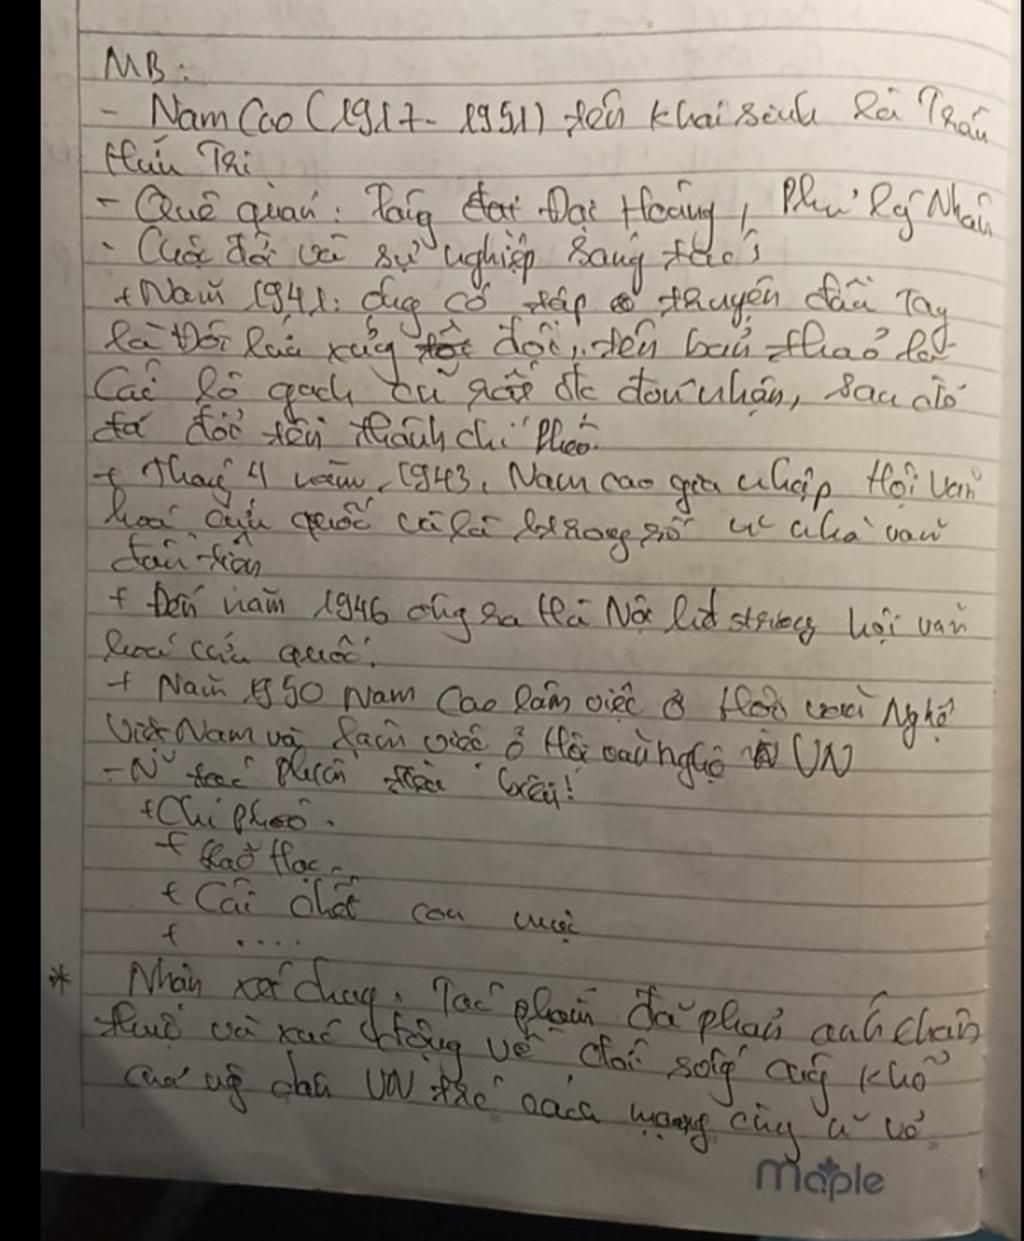 MB:
- Nam Cao (1917- 1951) tên khai sinh là Trần
Hữu Tri
- Quê quán: làng đại Đại Hoàng, Phủ Lý Nhân
- Cuộc đời và sự nghiệp sáng tác:
+ Năm 1941: ông có tập truyện đầu tay
là Đôi lứa xứng đôi, tên bản thảo là
Cái lò gạch cũ đc đón nhận, sau đó
đã đổi tên thành chí Phèo.
+ Tháng 4 năm 1943, Nam cao gia nhập Hội Văn
hoá cứu quốc và là trong số nhà văn
đầu tiên
+ Đến năm 1946 ông ra Hà Nội hội văn
hoá cứu quốc.
+ Năm 1950 Nam Cao làm việc ở Nghệ
Việt Nam và làm việc ở Hội văn nghệ VN
- N~ tác phẩm tiêu biểu:
+ Chí phèo.
+ Lão Hạc
+ Cái chết con mực
+ ....
* Nhận xét chung: Tác phẩm đã phản ánh chân
thực và xúc động về đời sống cùng khổ
của ng dân VN trc cách mạng cùng n~ vẻ
maple